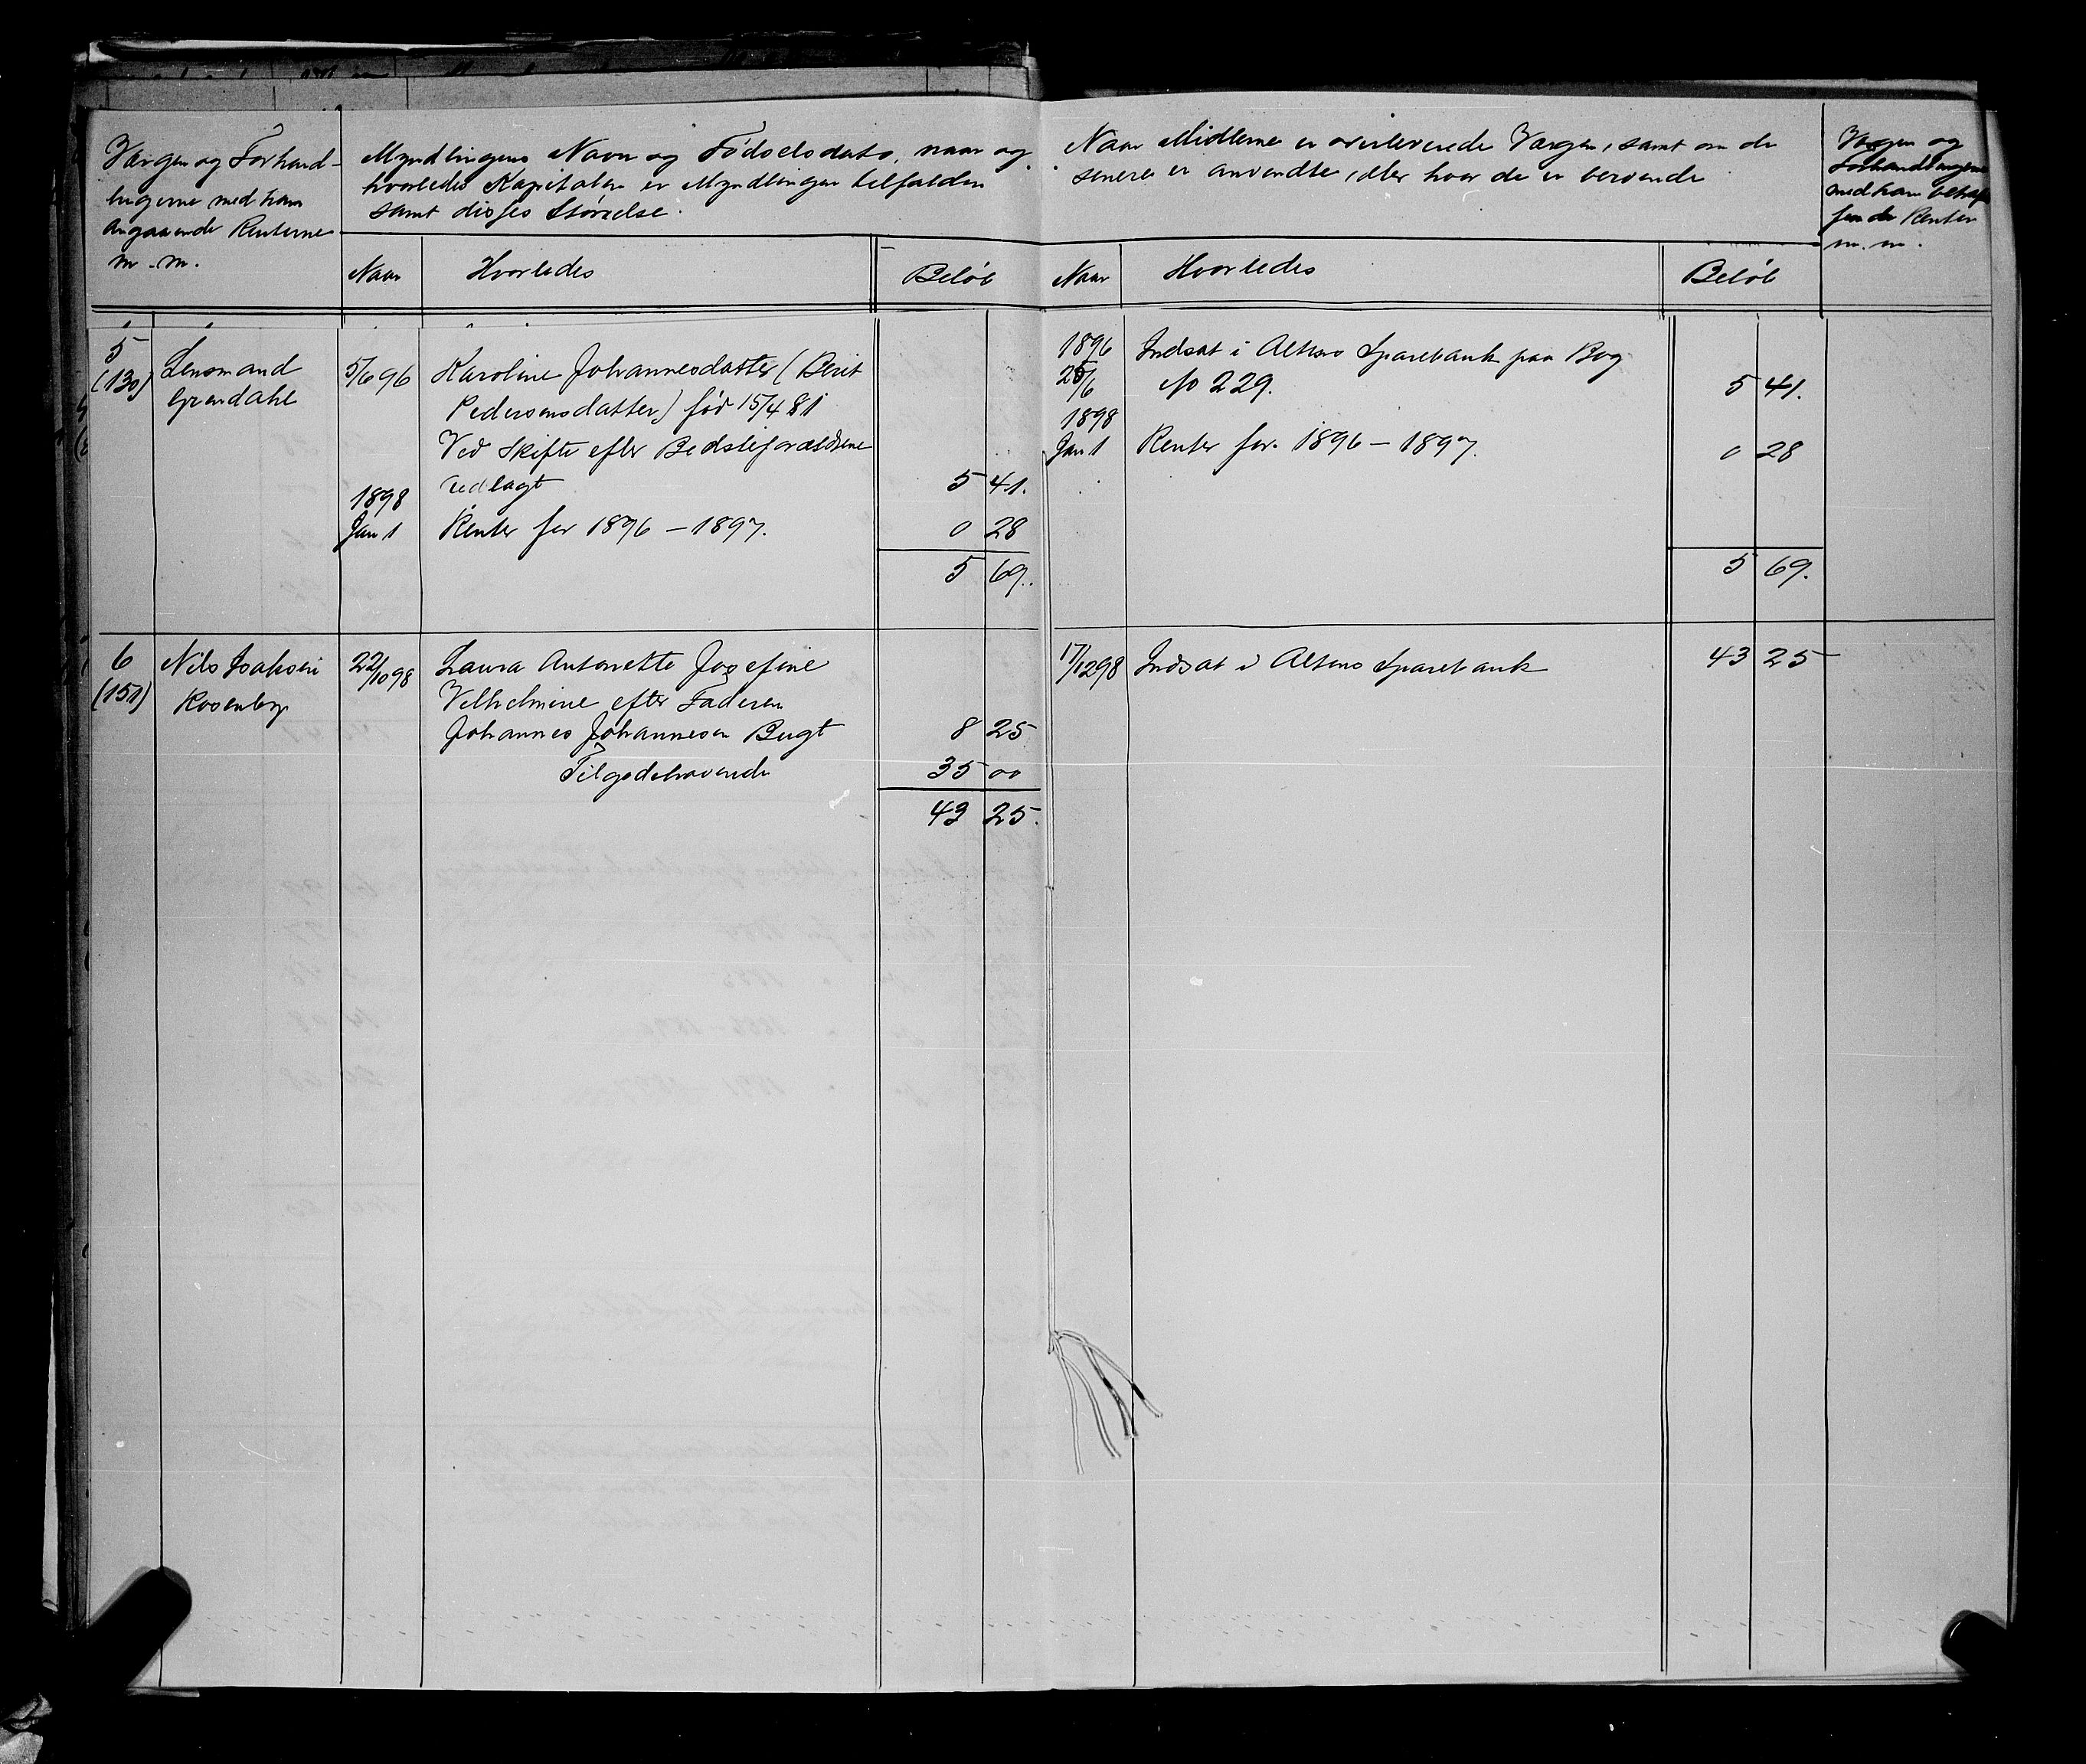 Værgen og Forhand-
lingerne med ham
angaaende Renterne
m. m.
Myndlingens Navn og Fødselsdato, naar og
hvorledes Kapitalen er Myndlingen tilfalden
samt disses Størrelse.
Naar Hvorledes Beløb
Naar Midlerne er overleverede Værgen, samt om de
senere er anvendte, eller hvor de er beroende
Naar Hvorledes Beløb
Værgen og
Forhandlingerne
med ham betræf
fende Renter
m. m.
5
(130)
Lensmand
Grendahl
5/6 96 Karoline Johannesdatter (Berit
Pedersensdatter) før 15/4 81
Ved Skifte efter Bedsteforældrene
udlagt 5 41.
1898
Jan 1 Renter for 1896 – 1897. 0 28
5 69.
1896
25/6 Indsat i Altens Sparebank paa Bog
No 229. 5 41.
1898
Jan 1 Renter for 1896 – 1897. 0 28
5 69.
6
(151)
Nils Isaksen
Rosenberg
22/10 98 Laura Antonette Josefine
Vilhelmine efter Faderen
Johannes Johannesen Bugt 8 25
Tilgodehavende 35 00
43 25.
17/12 98 Indsat i Altens Sparebank 43 25